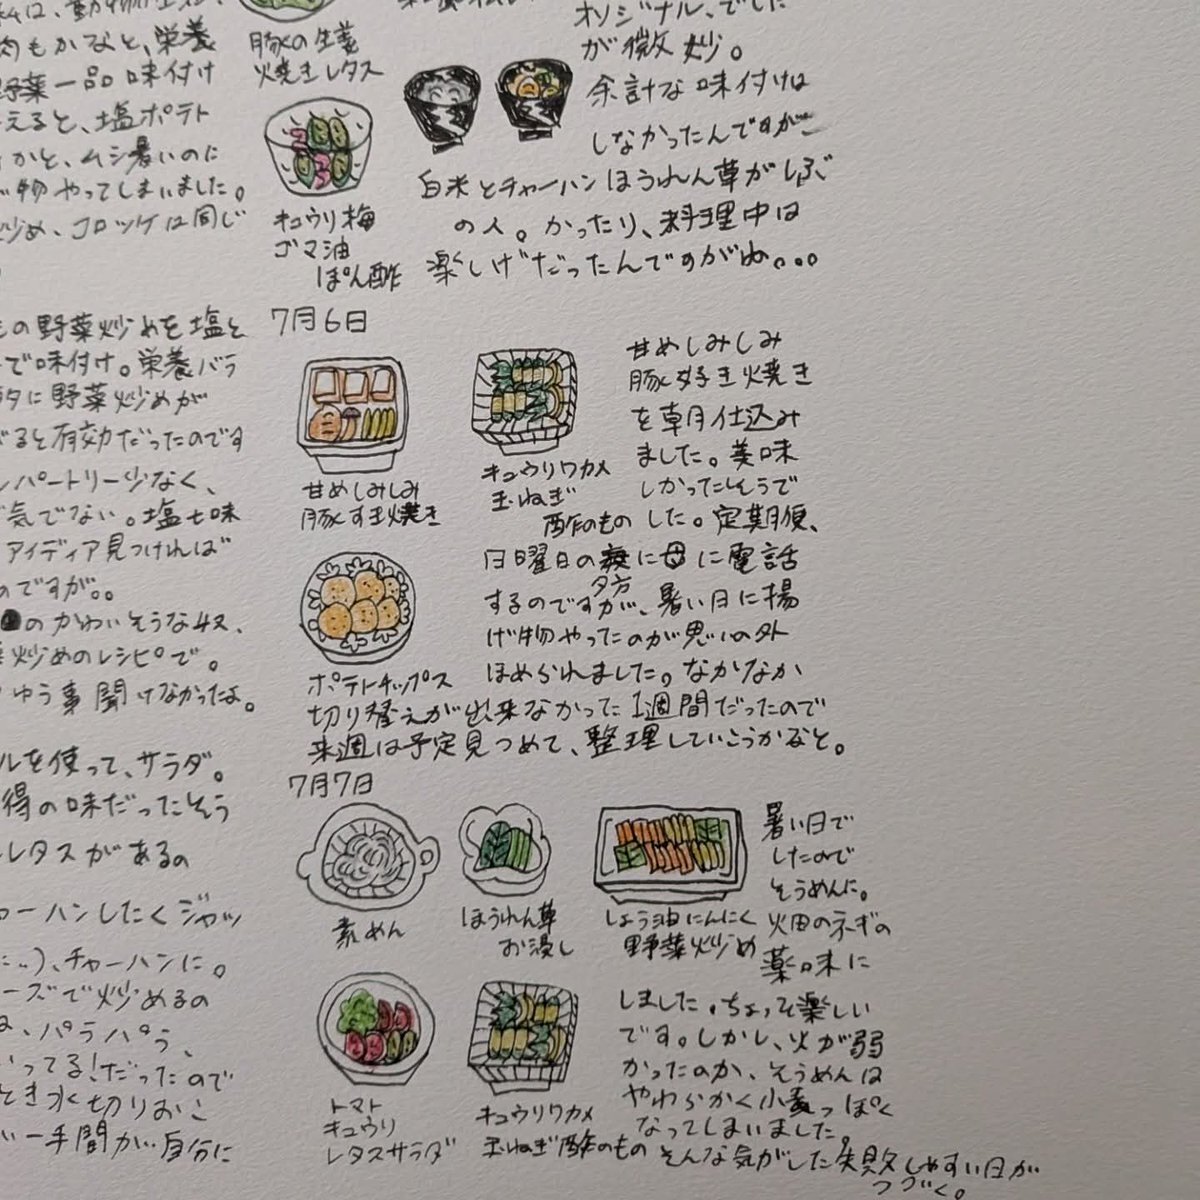 肉もかなと、栄養
野菜一品味付け
えると、塩ポテト
かと、ムシ暑いのに
物やってしまいました。
炒め、コロッケは同じ
豚の生姜
焼きレタス
キュウリ梅
ゴマ油
ぽん酢
オリジナル、でした
が微妙。
余計な味付けは
しなかったんですが
白米とチャーハンほうれん草がしぶ
の人。かったり、料理中は
楽しげだったんですがね。。。
の野菜炒めを塩と
で味付け。栄養バラ
タに野菜炒めが
ると有効だったのです
レパートリー少なく、
気でない。塩七味
アイディア見つければ
のですが。。
のかわいそうな奴、
炒めのレシピで。
ゆう事聞けなかったよ。
7月6日
甘めしみしみ
豚すき焼き
キュウリワカメ
玉ねぎ
酢のもの
ポテトチップス
甘めしみしみ
豚好き焼き
を朝仕込み
ました。美味
しかったそうで
した。定期便、
日曜日の夕方に母に電話
するのですが、暑い日に揚
げ物やったのが思いの外
ほめられました。なかなか
切り替えが出来なかった1週間だったので
来週は予定見つめて、整理していこうかなと。
ルを使って、サラダ。
得の味だったそう
レタスがあるの
ャーハンしたくジャッ
)、チャーハンに。
ーズで炒めるの
は、パラパラ、
ってる!だったので
とき水切りおこ
一手間が自分に
7月7日
素めん
ほうれん草
お浸し
しょう油にんにく
野菜炒め
トマト
キュウリ
レタスサラダ
キュウリワカメ
玉ねぎ酢のもの
暑い日で
したので
そうめんに。
畑のネギの
薬味に
しました。ちょっと楽しい
です。しかし、火が弱
かったのか、そうめんは
やわらかく小麦っぽく
なってしまいました。
そんな気がした失敗しやすい日が
つづく。